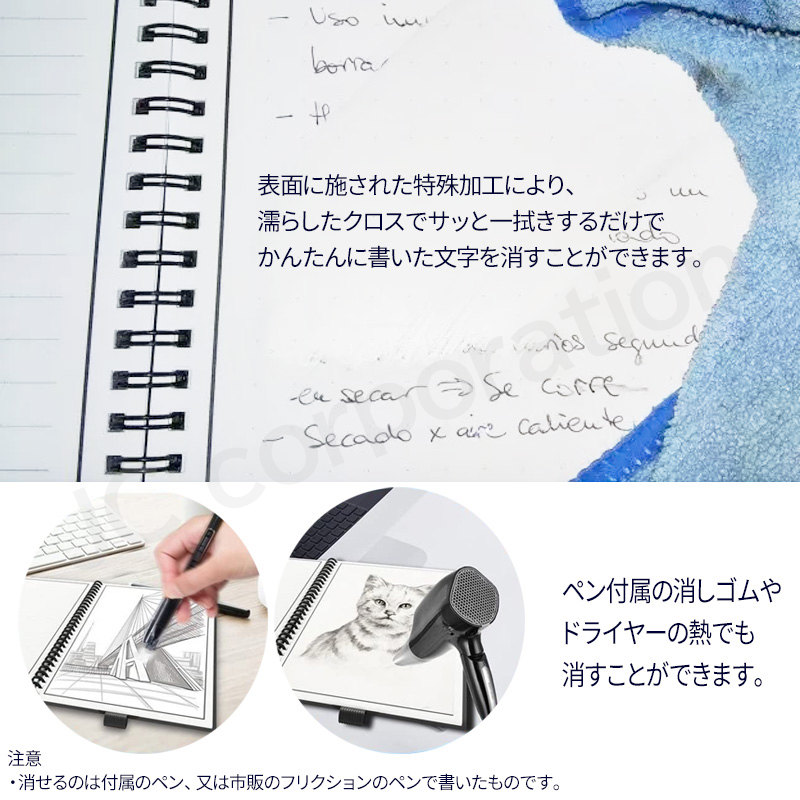 - Uso
borra
- H
表面に施された特殊加工により、
濡らしたクロスでサッと一拭きするだけで
かんたんに書いた文字を消すことができます。
varios segund
-en secar => Se corre
- Secado x aire caliente
JC corporation
ペン付属の消しゴムや
ドライヤーの熱でも
消すことができます。
注意
・消せるのは付属のペン、又は市販のフリクションのペンで書いたものです。